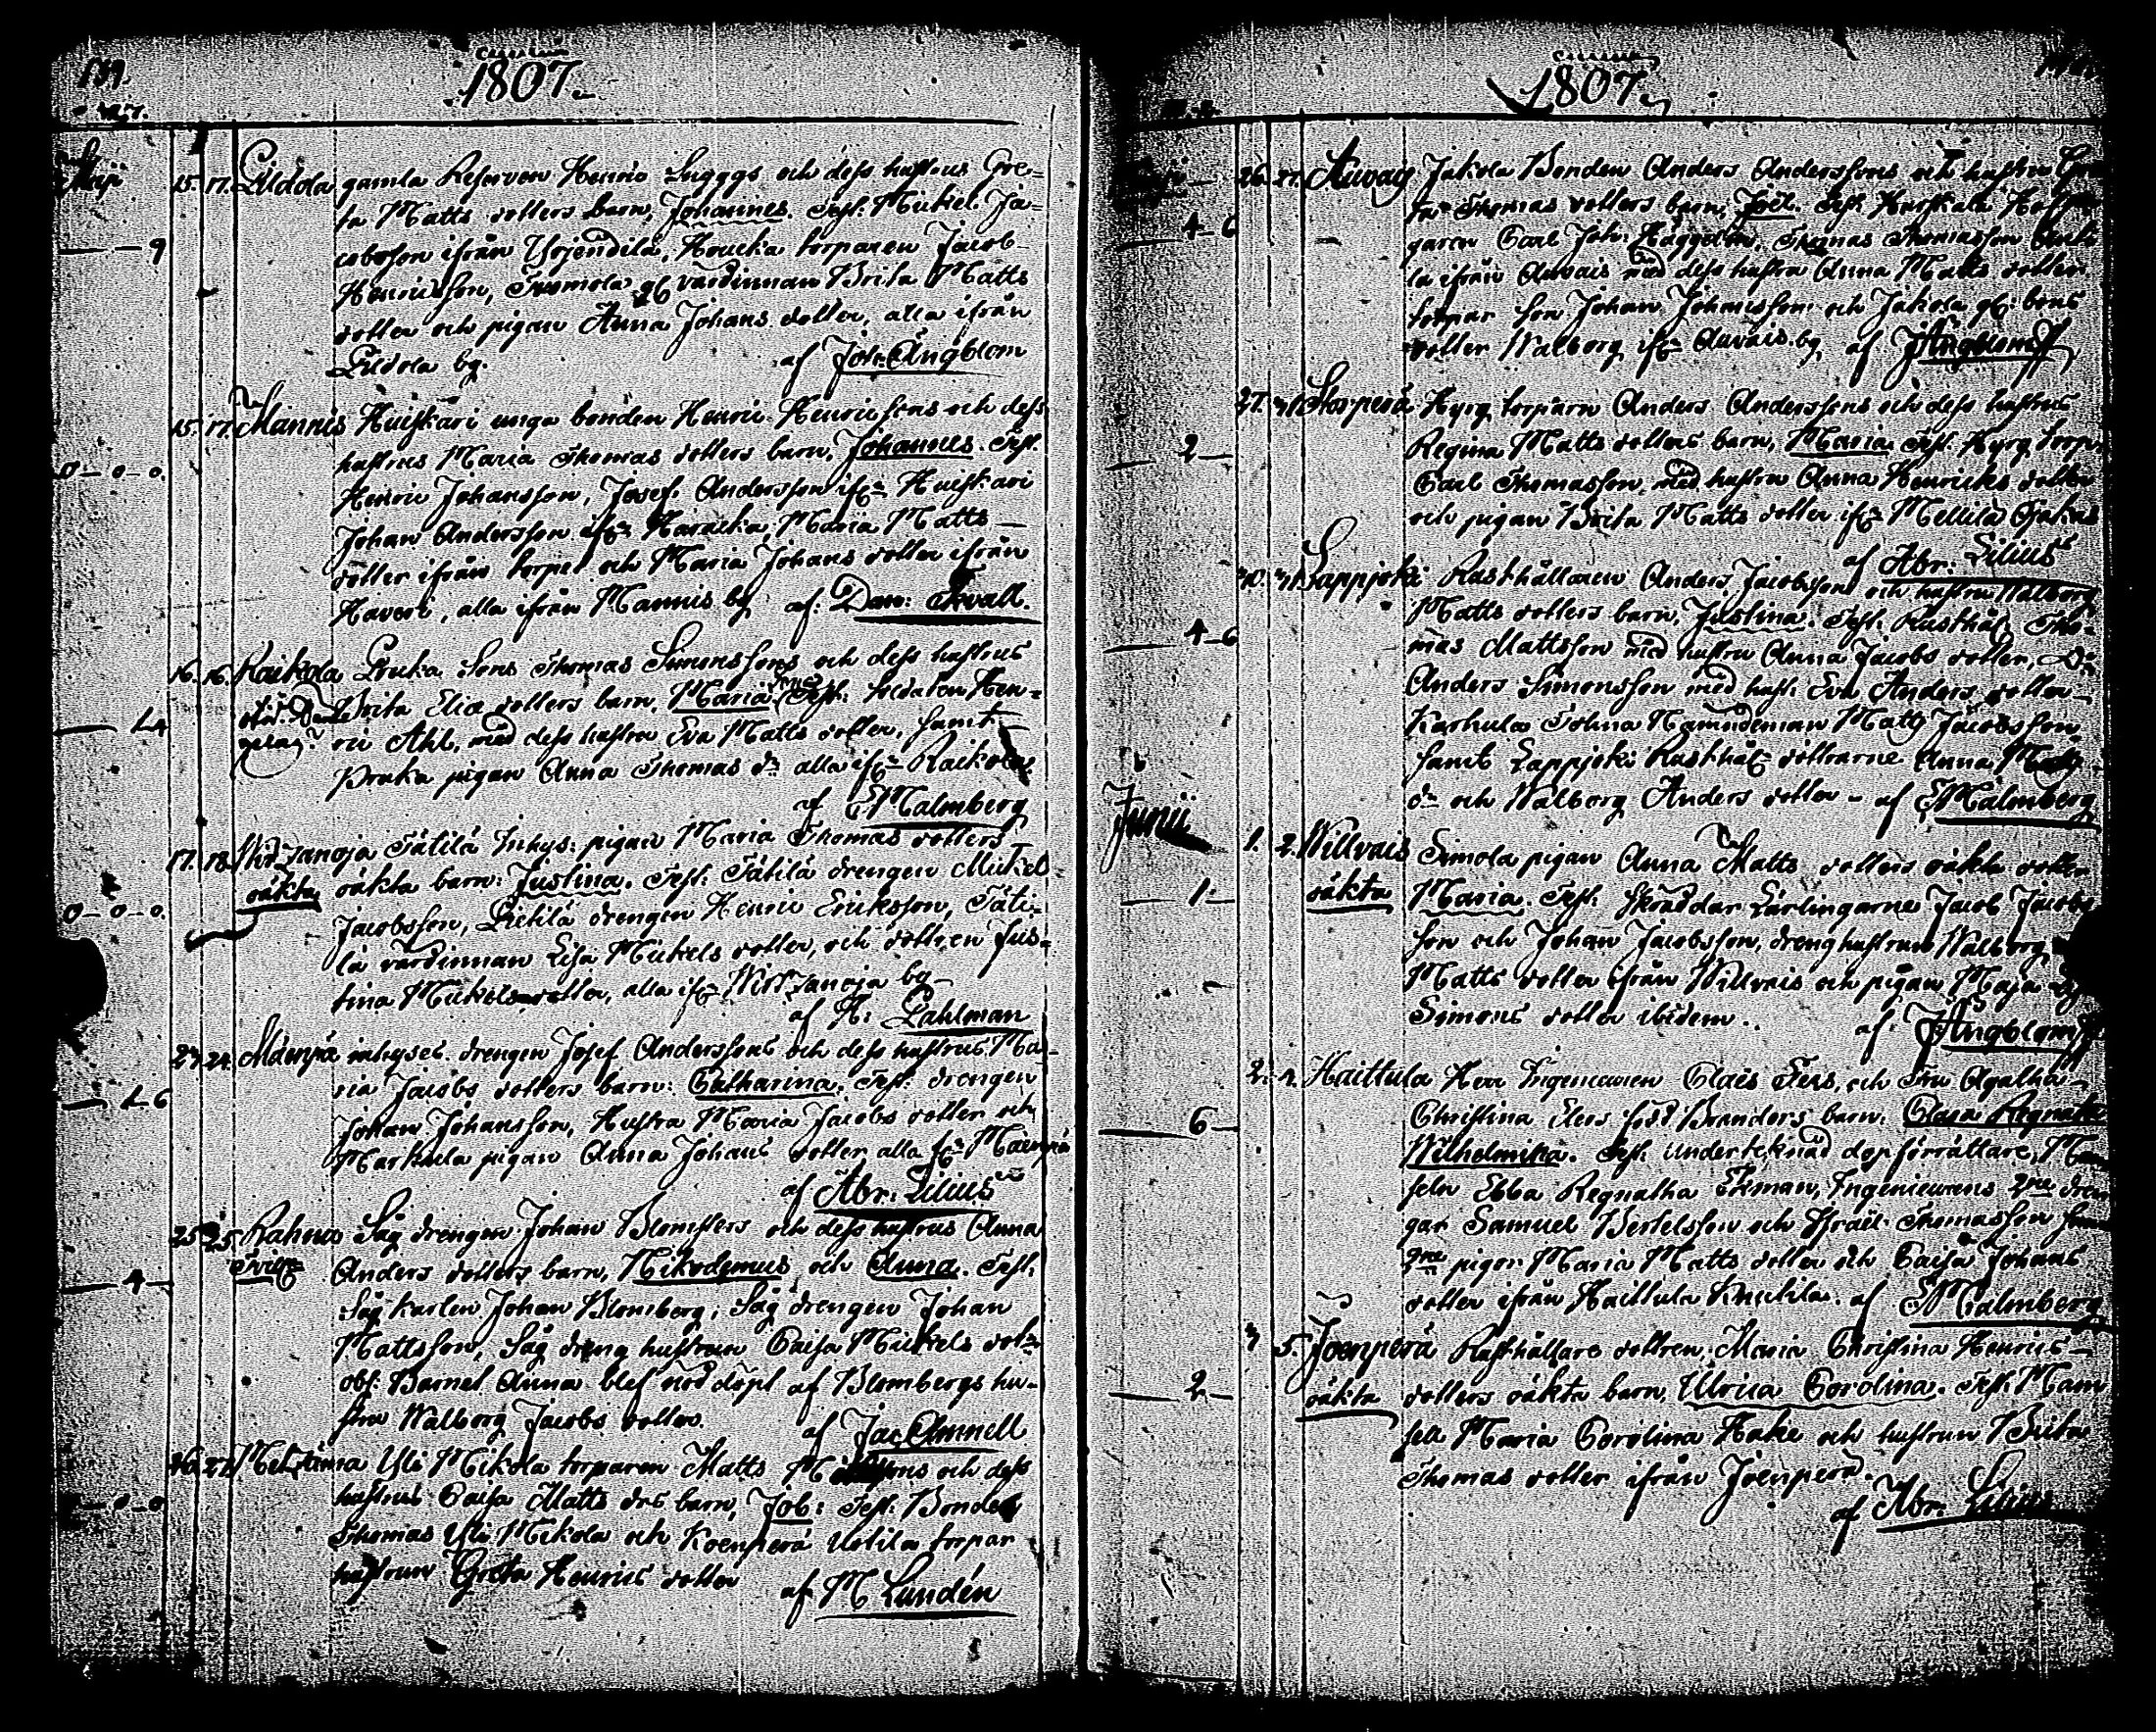 1807.
Maji
15. 17. Lildola gamla Reserven Henric Snyggs och dess hustrus Gre-
ta Matts dotters barn, Johannes. Test: Mickel Ja-
cobsson ifrån Yrjendilä, Houcka torparen Jacob
Henricsson, Tuomola gl värdinnan Brita Matts
dotter och pigan Anna Johans dotter, alla ifrån
Lildola by. af Joh: Ångblom
9
15. 17. Mannis Huiskari unga bonden Henric Henricsons och dess
hustrus Maria Thomas dotters barn, Johannes. Test.
Henric Johansson, Josef Andersson ifr Huiskari
Johan Andersson ifr Haracka, Maria Matts
dotter ifrån torpet och Maria Johans dotter ifrån
Haveri, alla ifrån Mannis by af: Dan: Twall.
0-0-0.
16. 16. Raikola Pruka Sons Thomas Simonssons och dess hustrus
Brita Eliæ dotters barn, Maria. Test: soldaten Hen-
ric Ahl, med dess hustru Eva Matts dotter, samt
Pruka pigan Anna Thomas dr alla ifr Raikola
af EMalmberg
17. 18. Wirtzanoja Tätilä Inhys: pigan Maria Thomas dotters
oäkta oäkta barn: Justina. Test: Tätilä drengen Mickel
Jacobsson, Pietilä drengen Henric Ericksson, Täti-
lä värdinnan Lisa Mickels dotter, och dottren Jus-
tina Mickels dotter, alla ifr Wirtzanoja by
af A: Lahlman
0-0-0.
23. 24. Mäenpä inhyses drengen Josef Anderssons och dess hustrus Ma-
ria Jacobs dotters barn: Catharina. Test: drengen
Johan Johansson, Hustru Maria Jacobs dotter och
Markula pigan Anna Johans dotter alla fr Mäenpä
af Abr: Lilius
25. 25. Kahnus Såg drengen Johan Blomsters och dess hustrus Anna
Anders dotters barn, Nikodemus och Anna. Test.
Såg karlen Johan Blomberg, Såg drengen Johan
Mattsson, Såg dreng hustrun Caisa Mickels dotr
obs: Barnet Anna blef nöd döpt af Blombergs hu-
stru Walborg Jacobs dotter. af Jac Amnell
4
26. 27. Metzäma Yli Mikola torparen Matts och dess
hustrus Caisa Matts drs barn, Job: Test: Bonden
Thomas Yli Mikola och Koenperä Uotila torpar
hustrun Greta Henrics dotter af M Lundén
1807.
26. 27. Auvais Jakola Bonden Anders Anderssons och hustru Gre
tas Thomas dotters barn, Joël. Test: Kurskala
garen Carl Joh: Häggblom, Thomas Thomasson
la ifrån Auvais med dess hustru Anna Matts dotter
torpar son Johan Johansson och Jakola gl: bons
dotter Walborg ifr Auvais by af JÅngblom
4-6
27. 31. Storperä Kyrg torparn Anders Anderssons och dess hustrus
Regina Matts dotters barn, Maria. Test: Kyrg torp.
Carl Thomasson, med hustru Anna Henricks dotter
och pigan Brita Matts dotter ifr Mellilä
af Abr: Lilius
2
30. 31. Lappjoki Rusthållaren Anders Jacobsson och hustru Walborg
Matts dotters barn, Justina. Test: Rusthål Tho-
mas Mattsson med hustru Anna Jacobs dotter,
Anders Simonsson med hust: Eva Anders dotter
Karhula Tolna Nämndeman Matts Jacobsson,
samt Lappjoki Rusthål döttrarne Anna Matts
dr och Walborg Anders dotter af EMalmberg
4-6
Junii
1. 2. Willvais Simola pigan Anna Matts dotters oäkta dotter
oäkta Maria. Test: Skräddar Lärlingarne Jacob Jacobs
son och Johan Jacobsson, dreng hustrun Walborg
Matts dotter ifrån Willvais och pigan Maja
Simons dotter ibidem.. af: JÅngblom
1
2. Haittula Herr Ingenieuren Claës Elers, och Fru Agatha
Christina Elers född Branders barn: Clara Regnata
Wilhelmina. Test: undertecknad dopförrättare, Mam
seln Ebba Regnatha Ekman, Ingenieurens 2ne dren
gar Samuel Bertelsson och Israël Thomasson
2ne pigor Maria Matts dotter och Caisa Johans
dotter ifrån Haittula Knutila. af EMalmberg
6
3 5. Joenperä Rusthållare dottren, Maria Christina Henrics
oäkta dotters oäkta barn, Ulrica Carolina. Test: Mam
sell Maria Carolina Hake och hustrun Brita
Thomas dotter ifrån Joenperä.
af Abr. Lilius
2